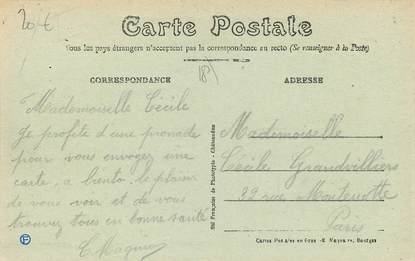 20 €
Carte Postale
Tous les pays étrangers n'acceptent pas la correspondance au recto (Se renseigner à la Poste)
CORRESPONDANCE
ADRESSE
Mademoiselle Cécile
Je profite d'une promade
pour vous envoyez une
carte. a biento. le plaisir
de vous voir et de vous
trouvez tous en bonne santé
C Magnier
Sté Française de Phototypie - Châteaudun
Mademoiselle
Cécile Grandvilliers
32 rue Montenotte
Paris
Cartes Postales en Gros - E. Maquaire, Bourges